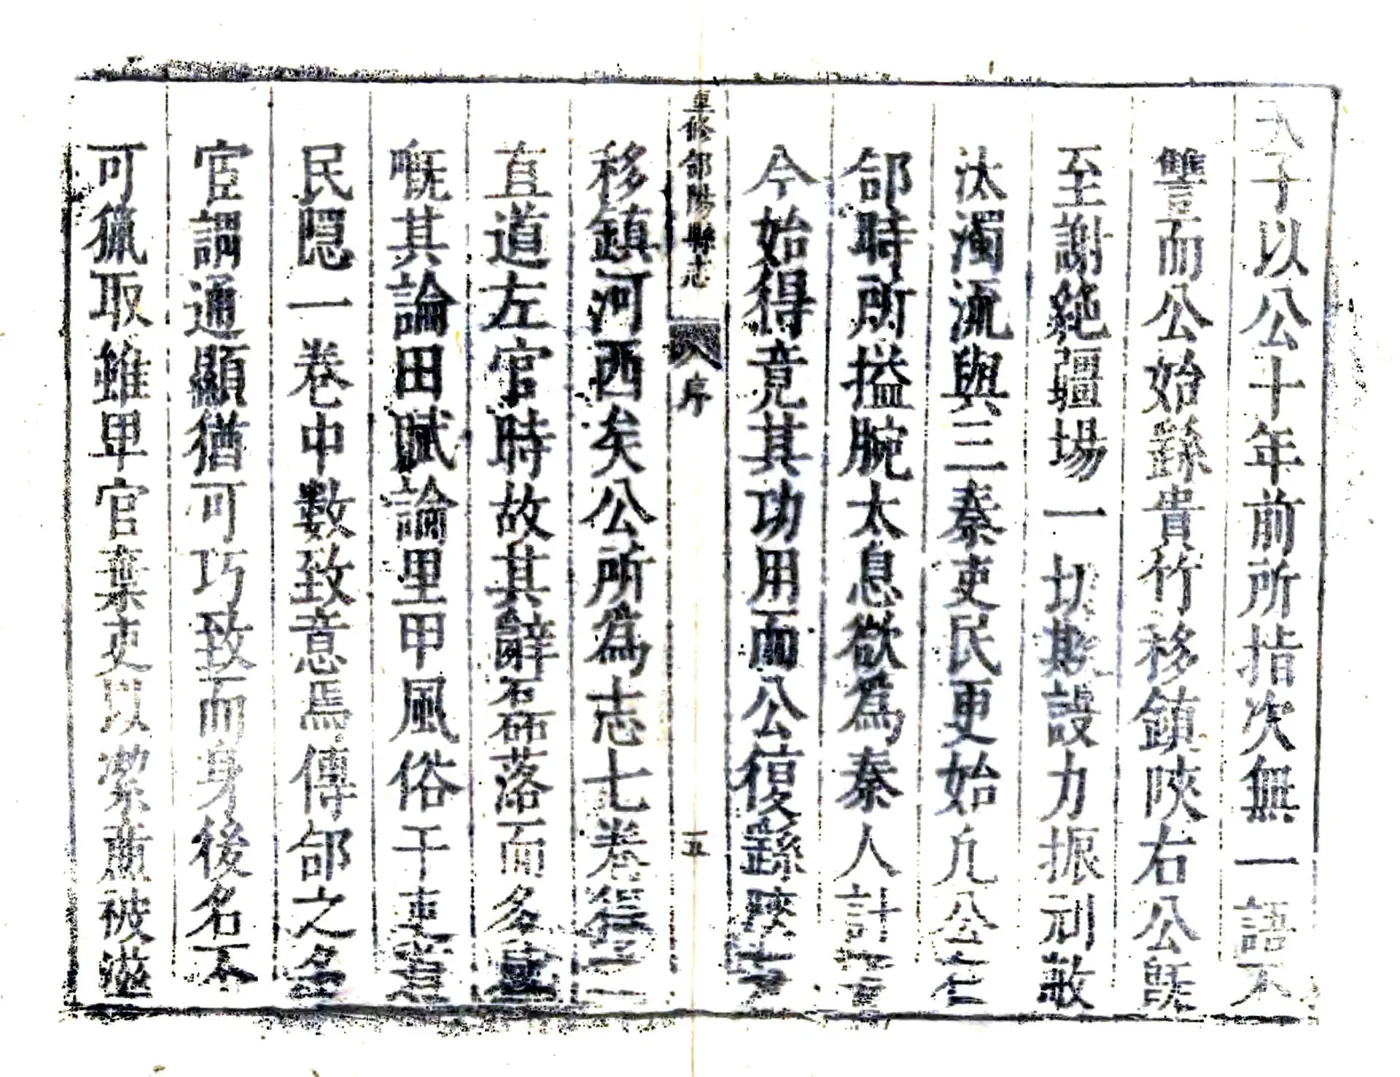 天子以公十年前所指次無一語不
讐而公始繇貴竹移鎮陝右公旣
至謝絶疆場一切欺謾力振刓敝
汰濁流與三秦吏民更始凡公
郃時所搤腕太息欲爲秦人計
今始得竟其功用而公復繇陝
重修郃陽縣志 序 五
移鎮河西矣公所爲志七卷
直道左官時故其辭磊砢落而多
嘅其論田賦論里甲風俗干吏
民隠一卷中數致意焉傳郃之名
宦謂通顯猶可巧致而身後名不
可獵取雖卑官棄吏以潔廉被滋